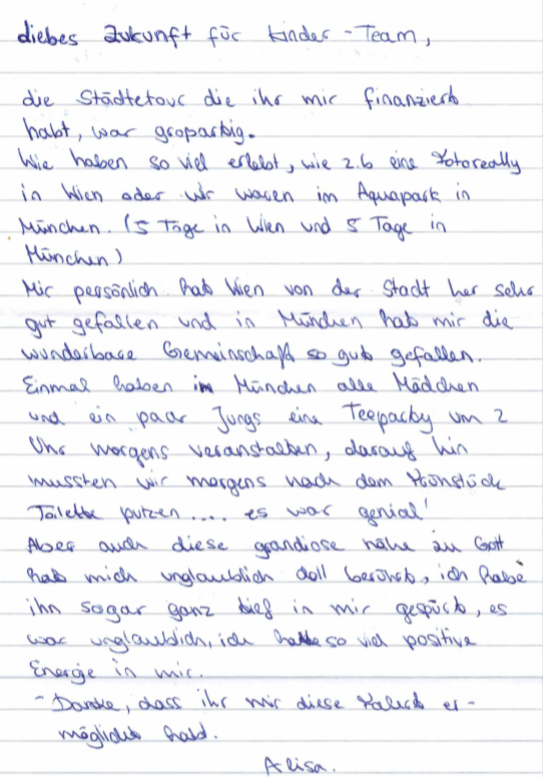 Liebes Zukunft für Kinder-Team,
die Städtetour die ihr mir finanziert
habt, war großartig.
Wie haben so viel erlebt, wie z.b eine Fotoreally
in Wien oder wir waren im Aquapark in
München. (5 Tage in Wien und 5 Tage in
München)
Mir persönlich hat Wien von der Stadt her sehr
gut gefallen und in München hat mir die
wunderbare Gemeinschaft so gut gefallen.
Einmal haben in München alle Mädchen
und ein paar Jungs eine Teeparty um 2
Uhr morgens veranstalten, darauf hin
mussten wir morgens nach dem Frühstück
Toilette putzen .... es war genial!
Aber auch diese grandiose nähe zu Gott
hat mich unglaublich doll berührt, ich habe
ihn sogar ganz tief in mir gespürt, es
war unglaublich, ich hatte so viel positive
Energie in mir.
- Danke, dass ihr mir diese Fahrt er-
möglicht habt.
Alisa.